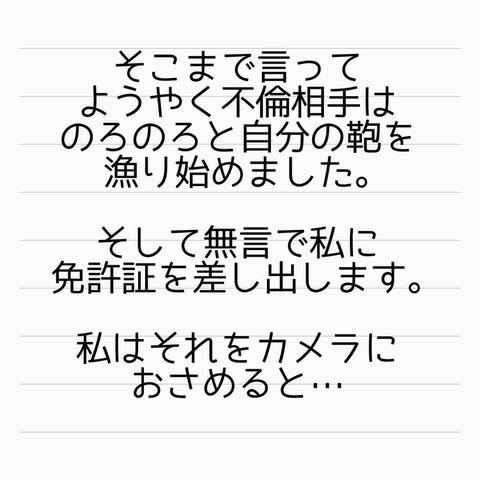 そこまで言って
ようやく不倫相手は
のろのろと自分の鞄を
漁り始めました。
そして無言で私に
免許証を差し出します。
私はそれをカメラに
おさめると…